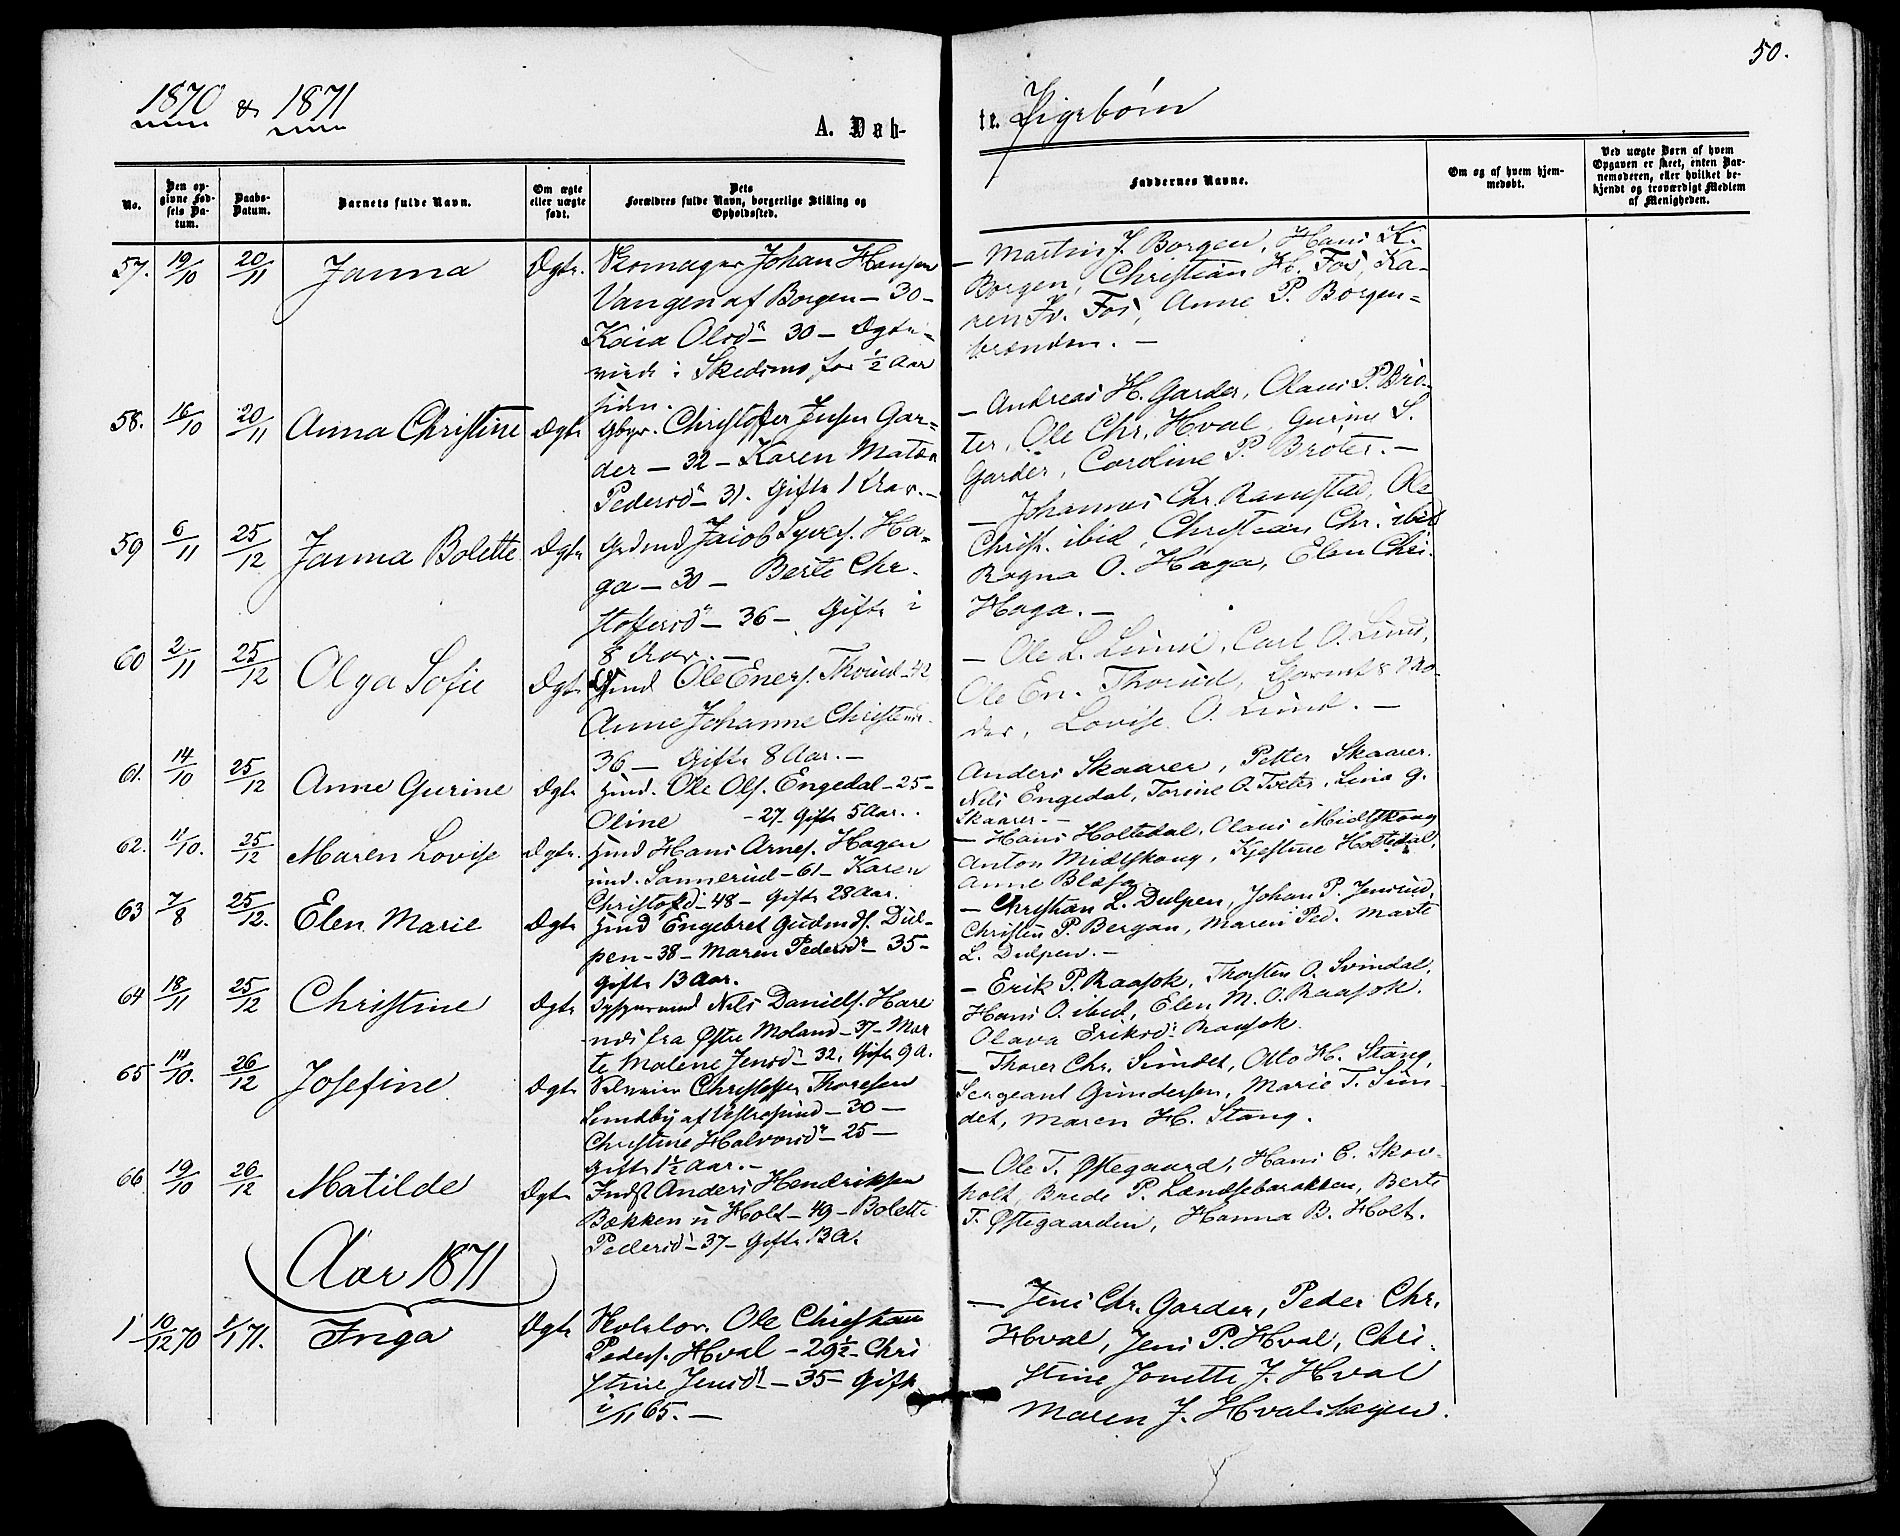 50.
1870 & 1871
A. Døb-
te. Pigebörn
No.
Den op-
givne Fød-
sels Da-
tum.
Daabs-
Datum.
Barnets fulde Navn.
Om ægte
eller uægte
født.
Dets
Forældres fulde Navn, borgerlige Stilling og
Opholdssted.
Faddernes Navne.
Om og af hvem hjem-
medøbt.
Ved uægte Børn af hvem
Opgaven er skeet, enten Bar-
nemoderen, eller hvilket be-
kjendt og troværdigt Medlem
af Menigheden.
57. 19/10 20/11 Janna Ægte. Skomager Johan Hansen
Vangen af Borgen – 30 –
Kaia Olsdr – 30 – Ægte-
viede i Skedsmo for ½ Aar
siden.
– Martin J. Borgen, Hans K.
Borgen, Christian H. Fos, Ka-
ren Fos, Anne P. Borgen-
brænden. –
58. 16/10 20/11 Anna Christine Ægte Gbgr. Christoffer Jensen Gar-
der – 32 – Karen Matea
Pedersdr – 31. Gifte 1 Aar. –
– Andreas H. Garder, Olaus P. Brö-
ter, Ole Chr. Hval, Gurine S.
Garder, Caroline P. Bröter. –
59 6/11 25/12 Janna Bolette Ægte Grdmd Jacob Syvers. Ha-
ga – 30 – Berte Chr.
stofersdr – 36 – Gifte i
8 Aar. –
– Johannes Chr. Ramstad, Ole
Christ. ibid, Christian Chr. ibid
Ragna O. Haga, Elen Chri.
Haga. –
60 2/11 25/12 Olga Sofie Ægte Gmd Ole Eners. Thorud – 42
Anne Johanne Christens
36 – Gifte 8 Aar. –
– Ole L. Lund, Carl O. Lund,
Ole En. Thorud, Barnets Mo-
der, Lovise O. Lund. –
61. 14/10 25/12 Anne Gurine Ægte Hmd. Ole Ols. Engedal – 25 –
Oline – 27. Gifte 5 Aar. .
Anders Skaarer, Petter Skaarer.
Nils Engedal, Torine O. Tveter, Lina G.
Skaarer. –
62. 11/10. 25/12 Maren Lovise Ægte. Hmd Hans Arnes. Hagen
und. Sannerud – 61 – Karen
Christofd – 48 – Gifte 28 Aar.
– Hans Holtedal, Olaus Midtskoug
Anton Midtskoug, Kjestine Holtedal,
Anne Blæsa.
63 7/8 25/12. Elen Marie Ægte Hmd Engebret Gudmds. Dul-
pen – 38 – Maren Pedersdr – 35 –
Gifte 13 Aar.
– Christian L. Dulpen, Johan P. Jensrud,
Christen P. Bergan, Maren Ped. Marte
L. Dulpen. –
64 18/11 25/12 Christine Ægte Nils Daniels. Hare
fra Østre Moland – 37 – Mar
te Malene Jensdr 32. Gifte 9 A.
– Erik P. Raasok, Thorsten O. Svindal,
Hans O. ibid, Elen M. O. Raasok.
Olava Eriksdr Raasok.
65 14/10. 26/12 Josefine Ægte Christoffer Thoresen
Lundby af Vestresund – 30 –
Christine Halvorsdr – 25 –
Gifte 1½ Aar. –
– Thorer Chr. Sundet, Otto H. Stang,
Sergeant Gundersen, Marie T. Sun-
det, Maren H. Stang.
66 19/10 26/12 Matilde Ægte Indst Anders Hendriksen
Bækken u Holt – 49 – Bolette
Pedersd – 37 – Gifte 13 A.
– Ole T. Østegaard, Hans C. Skov-
holt, Brede P. Lændsebarakken, Berte
T. Østegaarden, Hanna B. Holt.
Aar 1871
1 10/12 70 1/1 71. Inga Ægte Skolelær. Ole Christian
Peders. Hval – 29½ – Chri
stine Jensdr – 35 – Gift
i /11 65. –
– Jens Chr. Garder, Peder Chr.
Hval, Jens P. Hval, Chri.
stine Jonette J. Hval
Maren J. Hvalshagen.